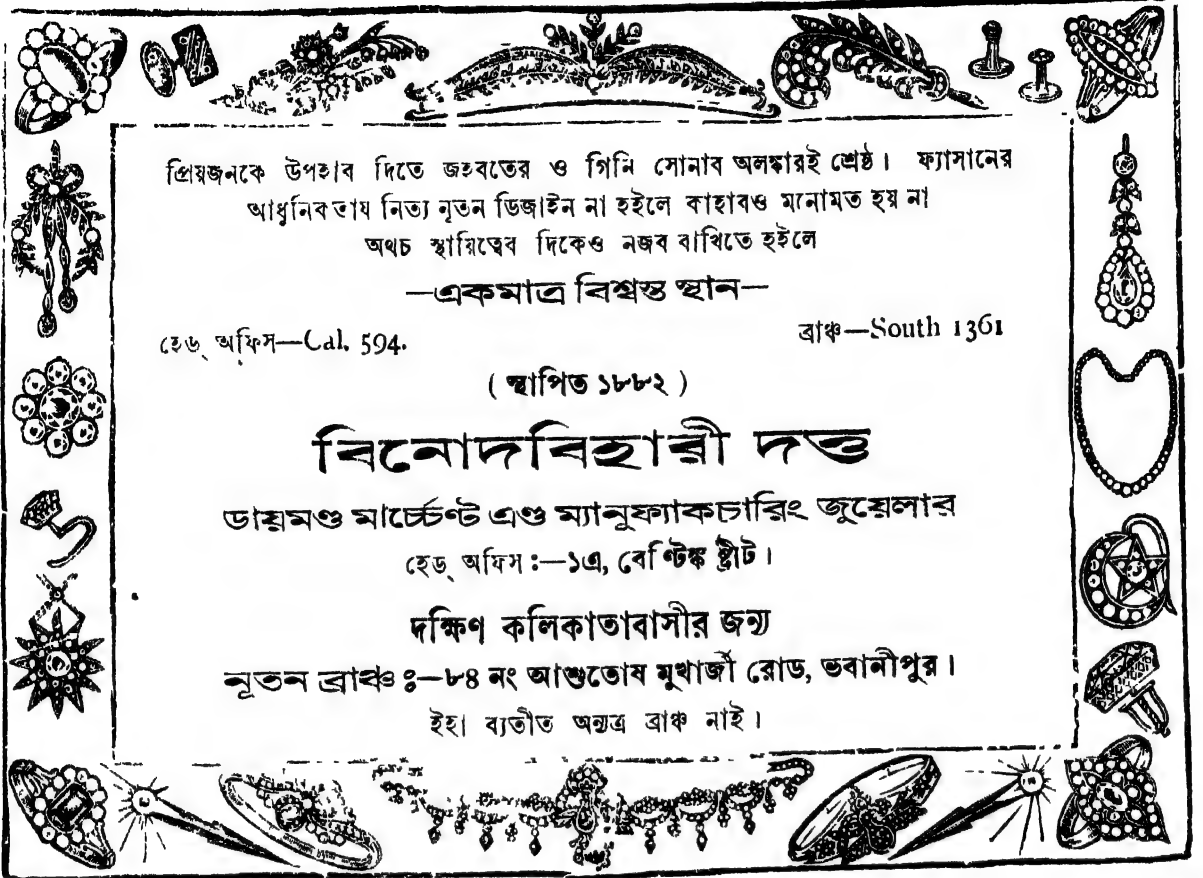 প্রিয়জনকে উপহার দিতে জহরতের ও গিনি সোনার অলঙ্কারই শ্রেষ্ঠ। ফ্যাসানের
আধুনিকতায় নিত্য নূতন ডিজাইন না হইলে কাহারও মনোমত হয় না
অথচ স্থায়িত্বের দিকেও নজর রাখিতে হইলে
—একমাত্র বিশ্বস্ত স্থান—
হেড্ অফিস—Cal. 594.
ব্রাঞ্চ—South 1361
( স্থাপিত ১৮৮২ )
বিনোদবিহারী দত্ত
ডায়মণ্ড মার্চ্চেণ্ট এণ্ড ম্যানুফ্যাকচারিং জুয়েলার
হেড্ অফিস :—১এ, বেণ্টিঙ্ক ষ্ট্রীট।
দক্ষিণ কলিকাতাবাসীর জন্য
নূতন ব্রাঞ্চ :—৮৪ নং আশুতোষ মুখার্জী রোড, ভবানীপুর।
ইহা ব্যতীত অন্যত্র ব্রাঞ্চ নাই।